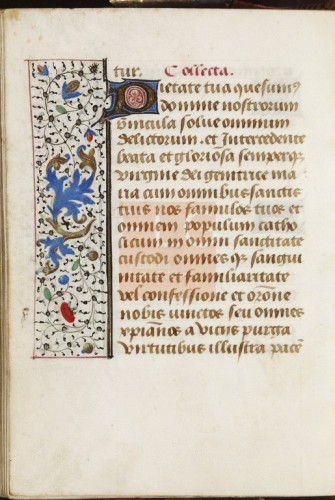 tur. Collecta.
Pietate tua quesumꝰ
domine nostrorum
vincula solue omnium
delictorum. et Intercedente
beata et gloriosa semperqꝫ
virgine dei genitrice ma
ria cum omnibus sanctis
tuis nos famulos tuos et
omnem populum catho
licum in omni sanctitate
custodi omnes qꝫ sangui
nitate et familiaritate
vel confessione et orōne
nobis iunctos seu omnes
xpianos a vicijs purga
virtutibus illustra pacē